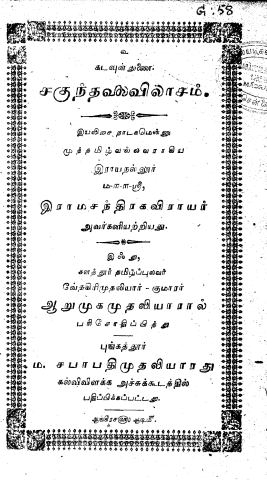 G. 58
உ
கடவுள் துணை.
சகுந்தலைவிலாசம்.
இயலிசை நாடகமென்னு
முத்தமிழ்வல்லவராகிய
இராயநல்லூர்
ம-ா-ா-ஸ்ரீ
இராமசந்திரகவிராயர்
அவர்களியற்றியது.
இஃது,
களத்தூர் தமிழ்ப்புலவர்
வேதகிரிமுதலியார் - குமாரர்
ஆறுமுகமுதலியாரால்
பரிசோதிப்பித்து
புங்கத்தூர்
ம. சபாபதிமுதலியாரது
கல்விவிளக்க அச்சுக்கூடத்தில்
பதிப்பிக்கப்பட்டது.